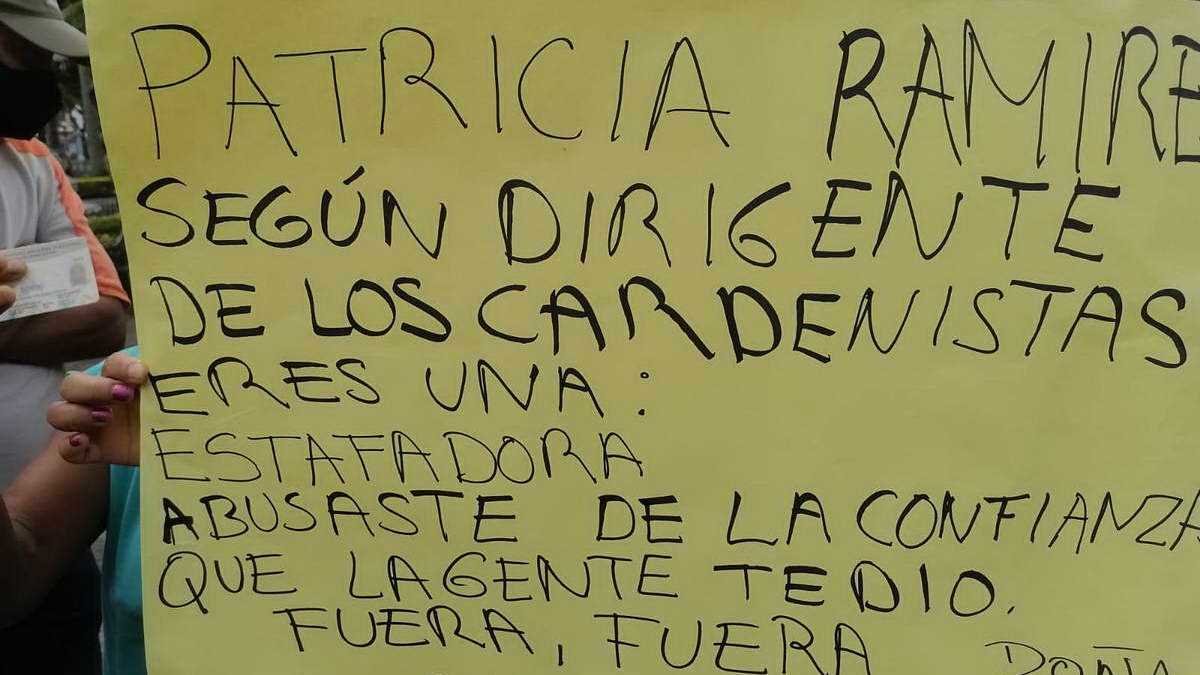 PATRICIA RAMIRE
SEGÚN DIRIGENTE
DE LOS CARDENISTAS
ERES UNA:
ESTAFADORA
ABUSASTE DE LA CONFIANZA
QUE LA GENTE TE DIO.
FUERA, FUERA